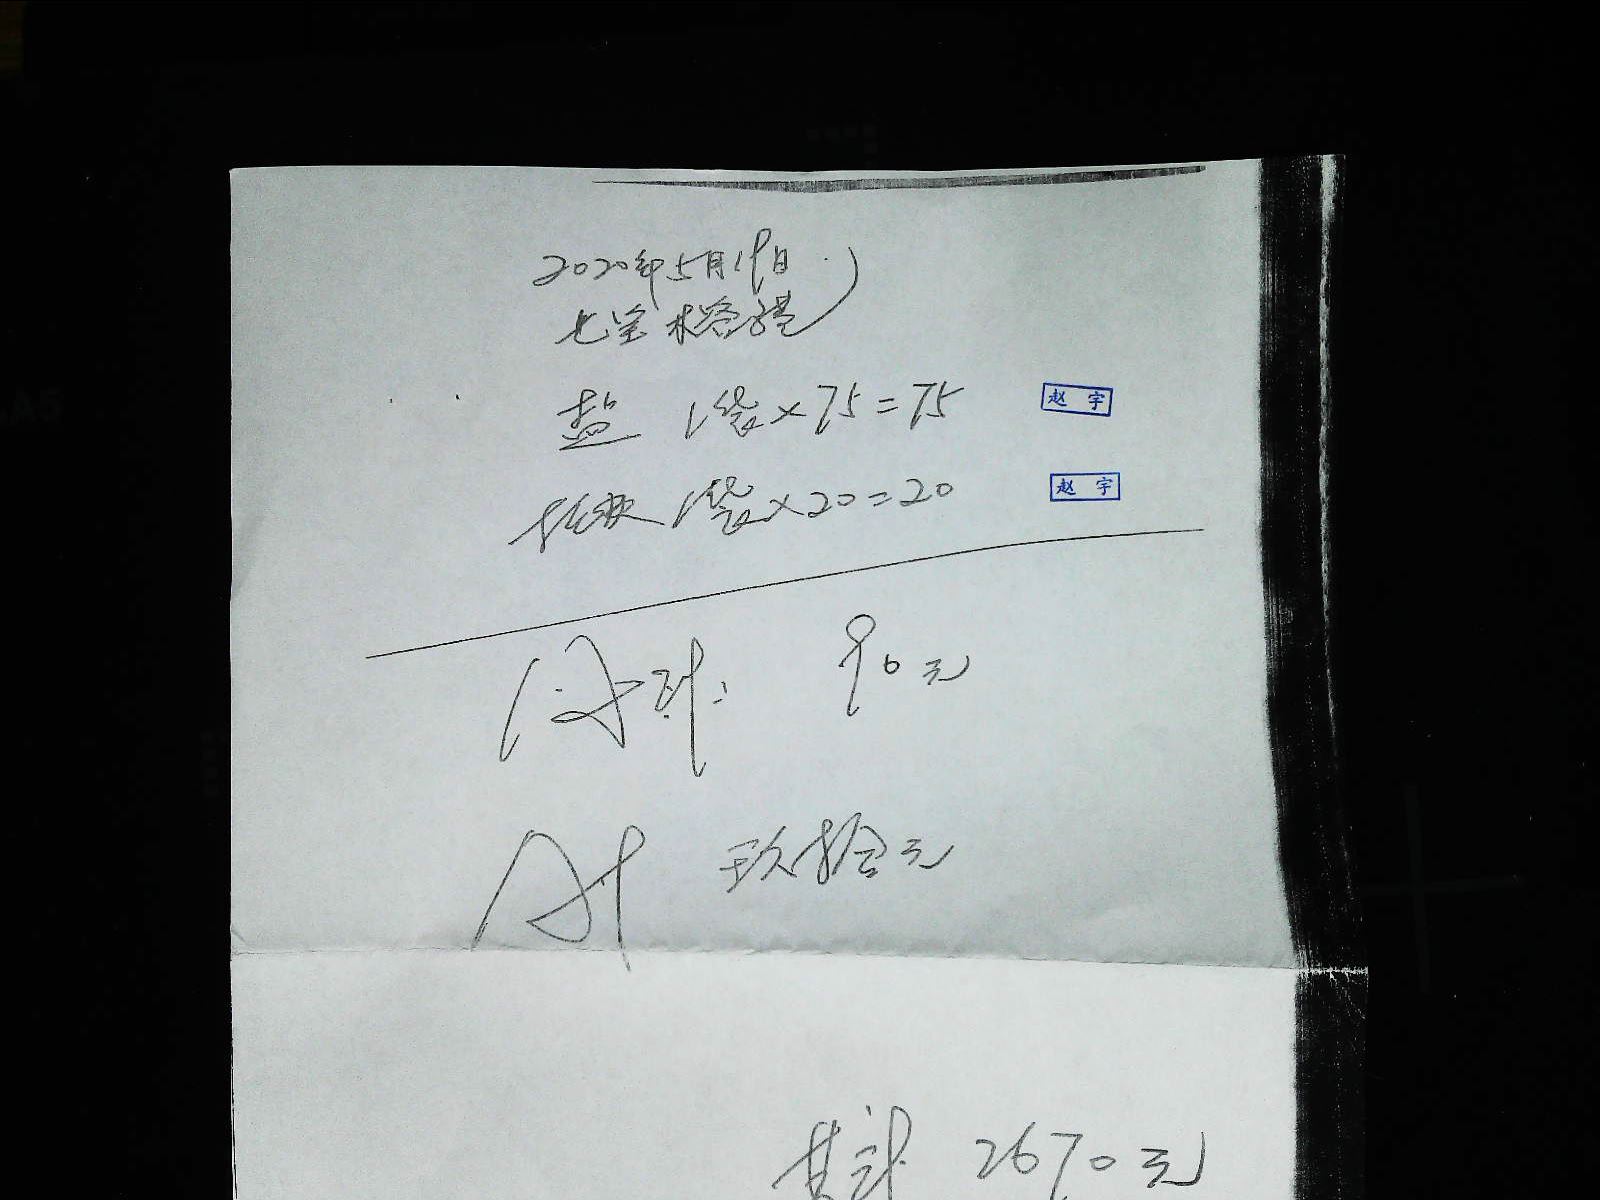 2020年5月19日
七宝
盐 1袋×75=75 赵宇
1袋×20=20 赵宇
90元
玖拾元
共计 2670元